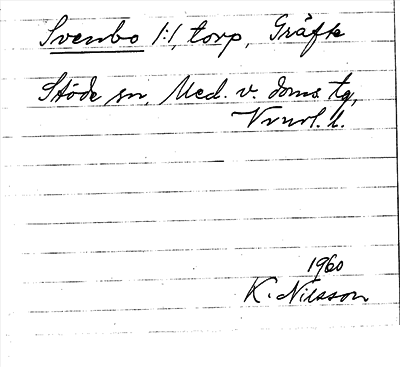 Svenbo 1:1, torp, Gräfte
Stöde sn, Med. v. doms. tg,
Vrnrl. l.
1960
K. Nilsson